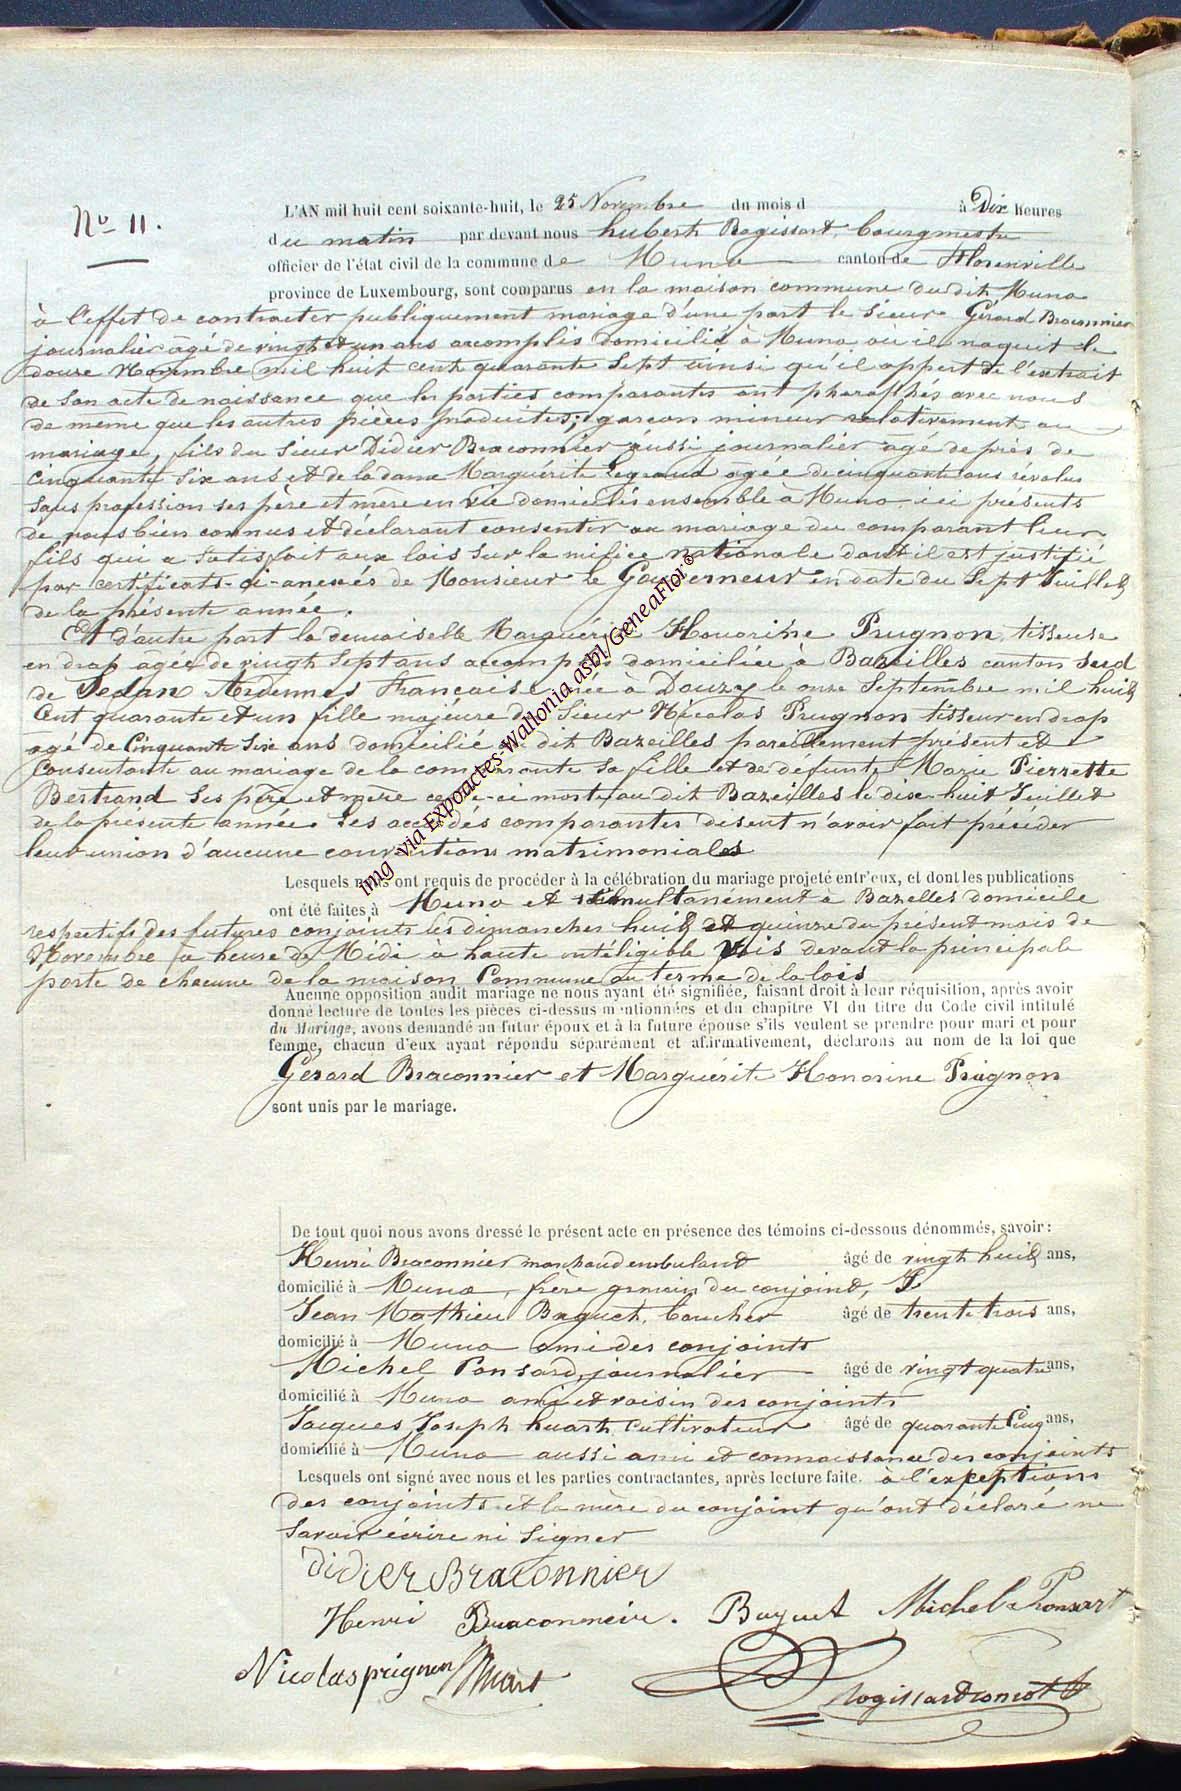 No 11.
L'AN mil huit cent soixante-huit, le 25 Novembre du mois d à Dix heures
du matin par devant nous hubert Rogissart, bourgmestre
officier de l'état civil de la commune de Muno canton de Florenville
province de Luxembourg, sont comparus en la maison commune du dit Muno
à l'effet de contracter publiquement mariage d'une part le Sieur Gérard Braconnier
journalier âgé de vingt et un ans accomplis domicilié à Muno où il naquit le
douze Novembre mil huit cent quarante Sept ainsi qu'il appert de l'extrait
de son acte de naissance que les parties comparantes ont pharaphés avec nous
de même que les autres pièces produites; garçon mineur relativement au
mariage, fils du Sieur Didier Braconnier aussi journalier âgé de près de
Cinquante Six ans et de la dame Marguérite Legrand agée de cinquante ans révolus
sans profession ses père et mere en vie domiciliés ensemble à Muno ici présents
de nous bien connus et déclarant consentir au mariage du comparant leur
fils qui a satisfait aux lois sur la milice nationale dont il est justifié
par certificats-ci-anexés de Monsieur le Gouverneur en date du Sept Juillet
de la présente année.
Et d'autre part la demoiselle Marguérite Honorine Prugnon tisseuse
en drap agée de vingt Sept ans accomplis domiciliée à Bazeilles canton Sud
de Sedan Ardennes Française née à Douzy le onze Septembre mil huit
Cent quarante et un fille majeure du Sieur Nicolas Prugnon tisseur en drap
agé de Cinquante Six ans domicilié au dit Bazeilles pareillement présent et
Consentante au mariage de la comparante sa fille et de défunte Marie Pierrette
Bertrand Ses père et mère celle-ci morte au dit Bazeilles le dix-huit Juillet
de la présente année. Les accordés comparantes disent n'avoir fait précéder
leur union d'aucune conventions matrimoniales
Lesquels nous ont requis de procéder à la célébration du mariage projeté entr'eux, et dont les publications
ont été faites à Muno et simultanément à Bazelles domicile
respectifs des futures conjoints les dimanches huit et quinze du présent mois de
Novembre à heure de Midi à haute intéligible vois devant la principale
porte de chacune de la maison Commune au terme de la lois
Aucune opposition audit mariage ne nous ayant été signifiée, faisant droit à leur réquisition, après avoir
donné lecture de toutes les pièces ci-dessus mentionnées et du chapitre VI du titre du Code civil intitulé
du Mariage, avons demandé au futur époux et à la future épouse s'ils veulent se prendre pour mari et pour
femme, chacun d'eux ayant répondu séparément et affirmativement, déclarons au nom de la loi que
Gérard Braconnier et Marguérite Honorine Prugnon
sont unis par le mariage.
De tout quoi nous avons dressé le présent acte en présence des témoins ci-dessous dénommés, savoir :
Henri Braconnier marchand embulant âgé de vingt huit ans,
domicilié à Muno, frère germain du conjoint,
Jean Mathieu Buguet, boucher âgé de trente trois ans,
domicilié à Muno ami des conjoints
Michel Ponsard, journalier âgé de vingt quatre ans,
domicilié à Muno ami et voisin des conjoints
Jacques Joseph huart, Cultivateur âgé de quarante Cinq ans,
domicilié à Muno aussi ami et connaissance des conjoints
Lesquels ont signé avec nous et les parties contractantes, après lecture faite. à l'exceptions
des conjoints et la mère du conjoint qu'ont déclaré ne
Savoir écrire ni Signer
didier Braconnier
Henri Braconnier. Buguet Michel Ponsart
Nicolas prignon Huart Rogissart
img via Expoactes-Wallonia asbl/GeneaFlor©